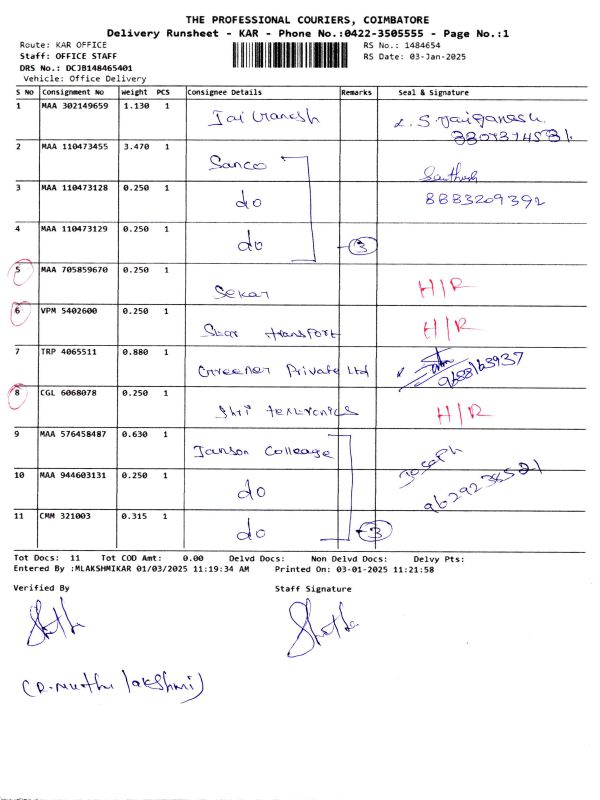 THE PROFESSIONAL COURIERS, COIMBATORE
Delivery Runsheet - KAR - Phone No.:0422-3505555 - Page No.:1
Route: KAR OFFICE RS No.: 1484654
Staff: OFFICE STAFF RS Date: 03-Jan-2025
DRS No.: DCJB148465401
Vehicle: Office Delivery
S No Consignment No Weight PCS Consignee Details Remarks Seal & Signature
1 MAA 302149659 1.130 1 Jai Ganesh S. Jai Ganesh.
2 MAA 110473455 3.470 1 Sanco Santhosh
3 MAA 110473128 0.250 1 do 8883209392
4 MAA 110473129 0.250 1 do 3
5 MAA 705859670 0.250 1 Sekar H/R
6 VPM 5402600 0.250 1 Star transport H/R
7 TRP 4065511 0.880 1 Greener Private Ltd 9688163937
8 CGL 6068078 0.250 1 Shri textronics H/R
9 MAA 576458487 0.630 1 Janson Colleage Joseph
10 MAA 944603131 0.250 1 do
11 CMM 321003 0.315 1 do 3
Tot Docs: 11 Tot COD Amt: 0.00 Delvd Docs: Non Delvd Docs: Delvy Pts:
Entered By :MLAKSHMIKAR 01/03/2025 11:19:34 AM Printed On: 03-01-2025 11:21:58
Verified By Staff Signature
(R. Muthu lakshmi)